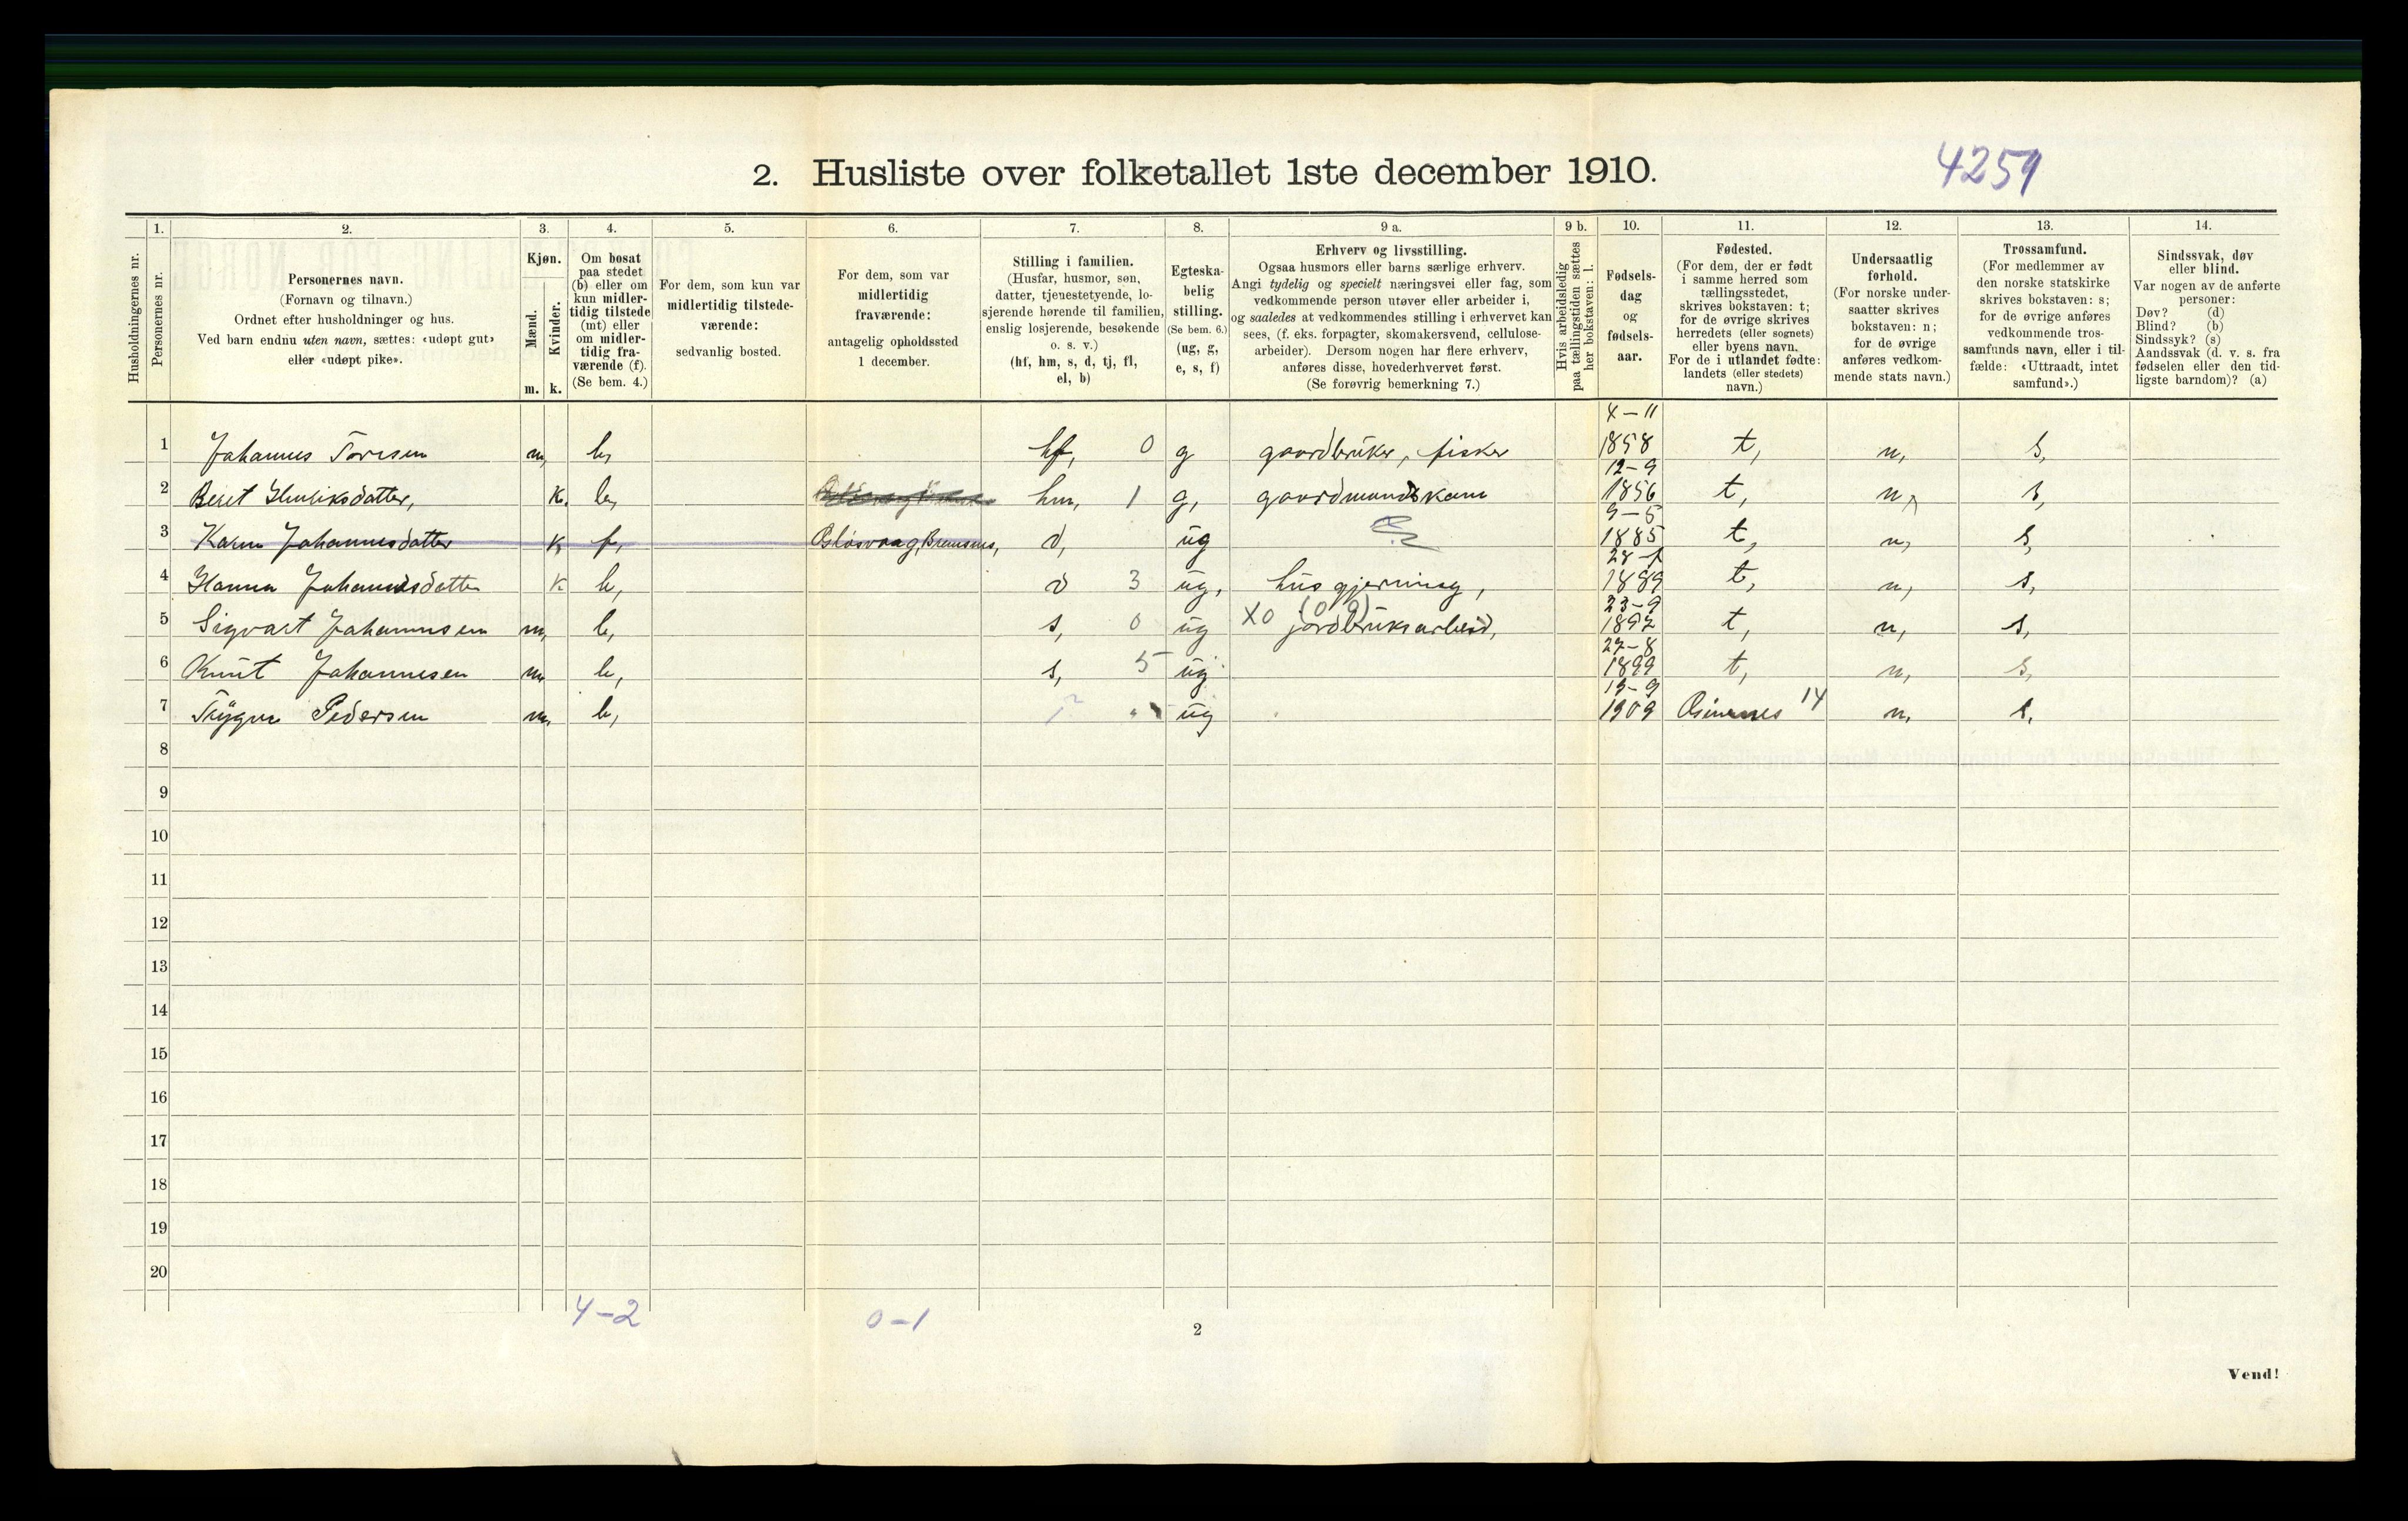 2. Husliste over folketallet 1ste december 1910.
4259
Husholdningernes nr.
1.
Personernes nr.
2.
Personernes navn.
(Fornavn og tilnavn.)
Ordnet efter husholdninger og hus.
Ved barn endnu uten navn, sættes: «udøpt gut»
eller «udøpt pike».
3.
Kjøn.
Mænd.
Kvinder.
m. k.
4.
Om bosat
paa stedet
(b) eller om
kun midler-
tidig tilstede
(mt) eller
om midler-
tidig fra-
værende (f).
(Se bem. 4.)
5.
For dem, som kun var
midlertidig tilstede-
værende:
sedvanlig bosted.
6.
For dem, som var
midlertidig
fraværende:
antagelig opholdssted
1 december.
7.
Stilling i familien.
(Husfar, husmor, søn,
datter, tjenestetyende, lo-
sjerende hørende til familien,
enslig losjerende, besøkende
o. s. v.)
(hf, hm, s, d, tj, fl,
el, b)
8.
Egteska-
belig
stilling.
(Se bem. 6.)
(ug, g,
e, s, f)
9 a.
Erhverv og livsstilling.
Ogsaa husmors eller barns særlige erhverv.
Angi tydelig og specielt næringsvei eller fag, som
vedkommende person utøver eller arbeider i,
og saaledes at vedkommendes stilling i erhvervet kan
sees, (f. eks. forpagter, skomakersvend, cellulose-
arbeider). Dersom nogen har flere erhverv,
anføres disse, hovederhvervet først.
(Se forøvrig bemerkning 7.)
9 b.
Hvis arbeidsledig
paa tællingstiden sættes
her bokstaven: l.
10.
Fødsels-
dag
og
fødsels-
aar.
11.
Fødested.
(For dem, der er født
i samme herred som
tællingsstedet,
skrives bokstaven: t;
for de øvrige skrives
herredets (eller sognets)
eller byens navn.
For de i utlandet fødte:
landets (eller stedets)
navn.)
12.
Undersaatlig
forhold.
(For norske under-
saatter skrives
bokstaven: n;
for de øvrige
anføres vedkom-
mende stats navn.)
13.
Trossamfund.
(For medlemmer av
den norske statskirke
skrives bokstaven: s;
for de øvrige anføres
vedkommende tros-
samfunds navn, eller i til-
fælde: «Uttraadt, intet
samfund».)
14.
Sindssvak, døv
eller blind.
Var nogen av de anførte
personer:
Døv? (d)
Blind? (b)
Sindssyk? (s)
Aandssvak (d. v. s. fra
fødselen eller den tid-
ligste barndom)? (a)
1 Johannes Toresen m, b, hf, 0 g gaardbruker, fisker 4-11 1858 t, n, s,
2 Beret Henriksdatter, k. b, hm, 1 g, gaardmandskone 12-9 1856 t, n, s,
3 Karen Johannesdatter k f, d, ug 9-5 1885 t, n, s,
4 Hanna Johannesdatter k b, d 3 ug, husgjerning, 28-1 1889 t, n, s,
5 Sigvart Johannesen m, b, s, 0 ug X0 (0 9) jordbruksarbeid, 23-9 1892 t, n, s,
6 Knut Johannesen m b, s, 5 ug 27-8 1899 t, n, s,
7 Trygve Pedersen m, b, ug 1909 14 n, s,
8
9
10
11
12
13
14
15
16
17
18
19
20
4-2 0-1
2
Vend!